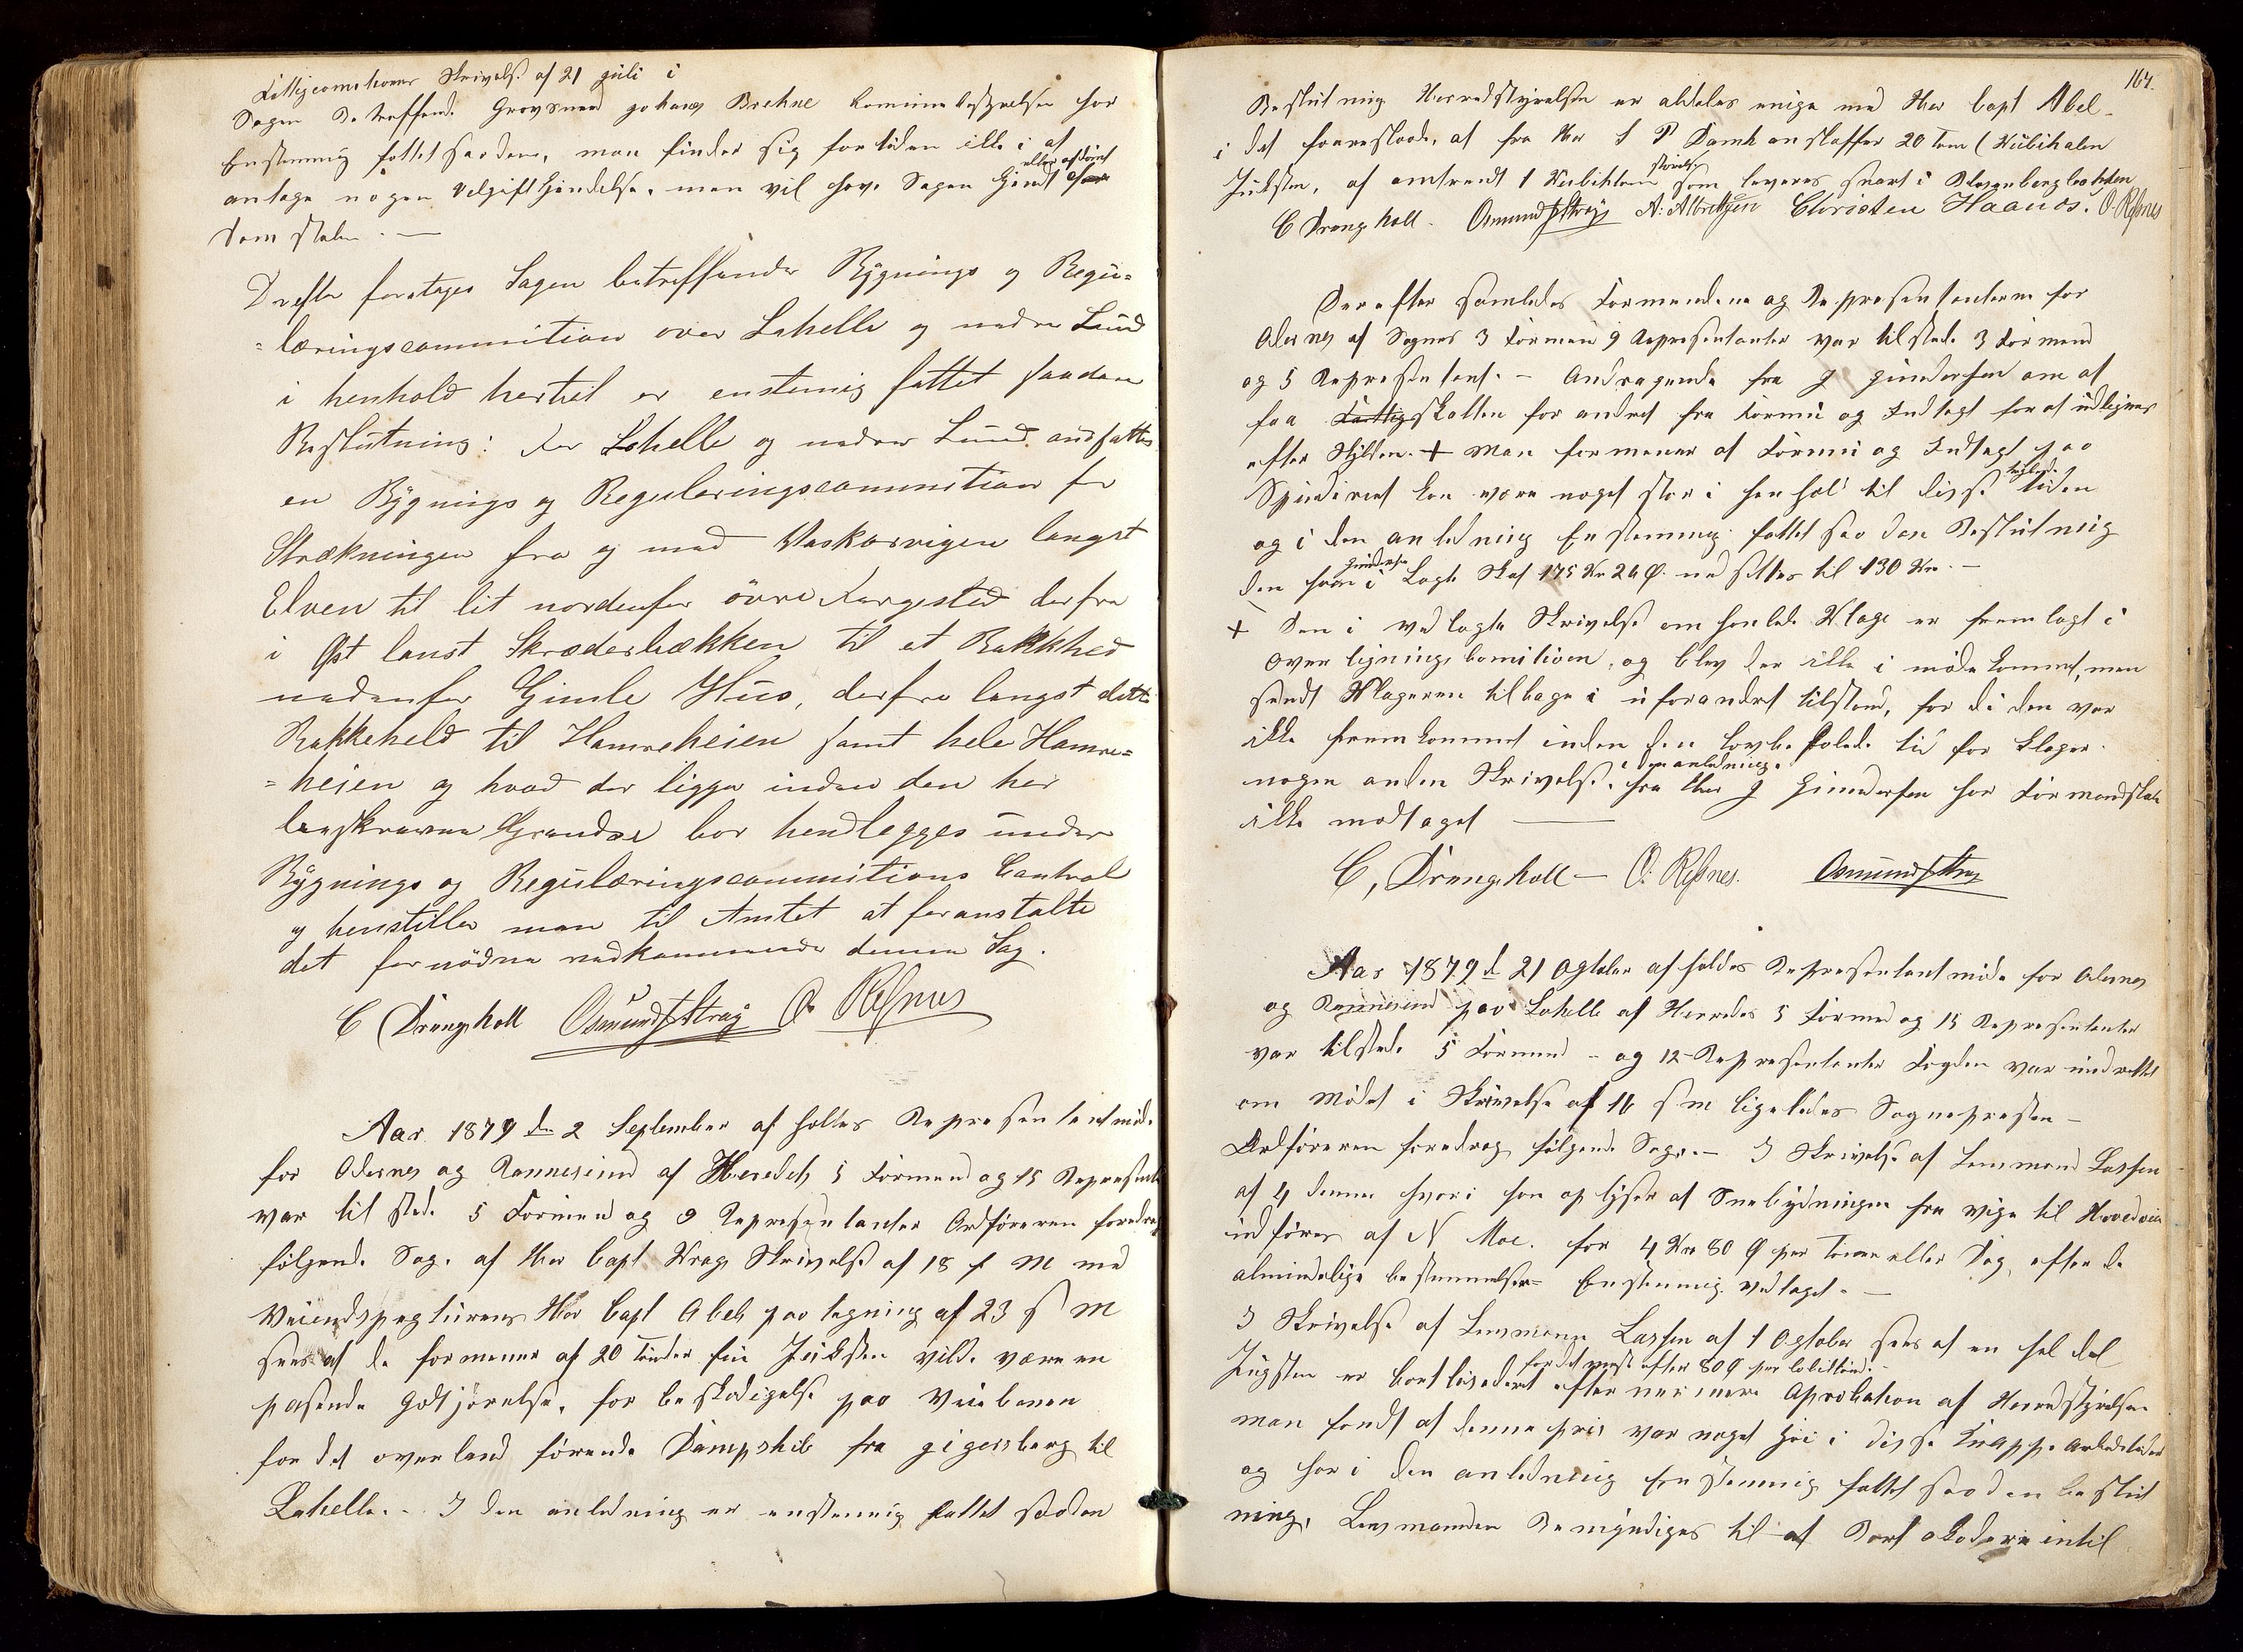 Fattigcomitioner Skrivelse af 21 Juli i
Sagen Betreffende Grovsmed Johans Brekne Kommunebestyrelsen har
Enstemmig fattet saadan, man finder sig fortiden ikke i at
antage nogen Velgift hendelse. men vil have Sagen Hendt
eller afdömt
Dom stolen. —
Drefter foretages Sagen betreffende Bygnings og Regu=
=læringscommition over Lahelle og nedre Lund
i henhold hertil er enstemig fattet saadan
Beslutning: For Lahelle og nedre Lund andsattes
en Bygnings og Reguleringscommition for
Strækningen fra og med Vaskærvigen langst
Elven til lit nordenfor övre Fargested derfra
i Øst lanst Skræderbækken til et Bakkheд
nedenfor Gimle Hus, derfra langst dette
Bakkeheld til Hamreheien samt hele Hamre=
=heien og hvad der ligger inden den her
beskrevne Grændse bör henlegges under
Bygnings og Reguleringscommitions Control
og henstiller man til Amtet at foranstalte
det fornödne vedkommende denne Sag.
C Drangsholt Osmund Strøy O. Refsnes
Aar 1879 den 2 September af holtes Representantmöde
for Odernes og Rannesund af Heredets 5 Formend og 15 Represent
var til stede 5 Formend og 9 Representanter Ordföreren foredrog
fölgende Sag. af Her Capt Krag Skrivelse af 18 f M med
Veiendspegtörens Her Capt Abels paategning af 23 s M
sees at de formener at 20 Tönder fin Juksten vilde være en
pasende Godtjörelse, for beskadigelse paa Veiebanen
for det overland förende Dampskib fra Gigersberg til
Lahelle. - I den anledning er enstemmig fattet saadan
167.
Beslutning Herredstyrelsen er aldeles enige med Her Capt Abel
i det foreslaade, at fra Her S P Damk anskaffer 20 Tom (Kubikalen
Juksten, af omtrendt 1 Kubiktom störelse som leveres snart i
C Drangsholt. Osmund Strøy A: Albretzen Christen Haanes. O. Refsnes
Derefter samledes Formendene og Representanterne for
Odernes af Sognes 3 Formen 9 Representanter var tilstede 3 Formend
og 5 Representent. - Andragende fra J Gundersen om at
faa Fattigskatten forandret fra Formu og Indtegt for at udlignes
efter Skylden. + Man formener at Formu og Indtegt paa
Spinderiet kan være noget stor i henhold til disse trykkede Tiden
og i den anledning Enstemmig fattet saadan Beslutning
den ham i Lagte Skat 175 Kr 26 Ø. nedsettes til 130 Kr. -
Gundersen
+ Den i vedlagte Skrivelse omhanlede Klage er fremlagt i
Overligningskomitioen, og blev der ikke i möde kommet, men
sendt Klageren tilbage i uforandret tilstand, for di den var
ikke fremkommet inden den lovbefalede tid for Klager.
nogen anden Skrivelse i den anledning. fra Her J Gundersen har Formandskabet
ikke modtaget ——
C, Drangsholt — O. Refsnes. Osmund Strøy
Aar 1879 d 21 Ogtober af holdes Representantmöde for Odernes
og Rannesund paa Lahelle af Herredes 5 Formend og 15 Representanter
var tilstede 5 Formend - og 12 - Representanter Fogden var underrettet
om Mödet i Skrivelse af 16 s m ligeledes Sognepresten -
Ordföreren foredrog fölgende Sag. - I Skrivelse af Lensmand Lassen
af 4 denne hvori han oplyser at Snebrydningen fra Vige til
udföres af N Moe. for 4 Kr 80 Ø per Time eller Dag, efter de
almindelige bestemmelser= Enstemmig vedtaget. —
I Skrivelse af Lensmann Lassen af 1 Ogtober sees at en hel del
Jugsten er bortliciderret efter nermere Aprobation af Herredstyrelsen
for det meste efter 80 Ø per
man fandt at denne pris var noget höi i disse Knappe Arbeidstider
og har i den anledning Enstemmig fattet saadan beslut
ning, Lensmanden Bemyndiges til at Bort akordere intil